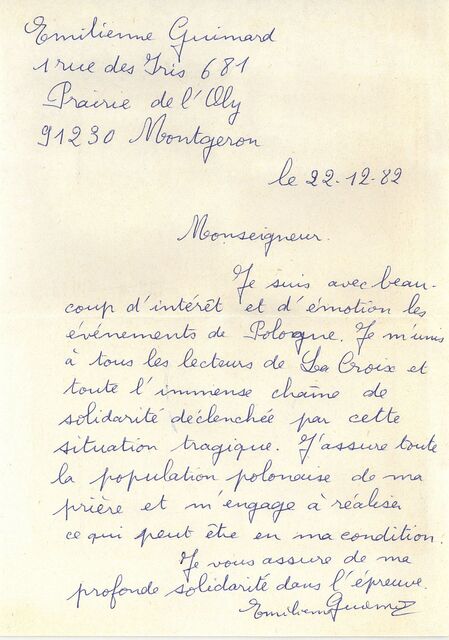 Emilienne Guimard
1 rue des Iris 681
Prairie de l'Oly
91230 Montgeron
le 22-12-82
Monseigneur.
Je suis avec beau-
coup d'intérêt et d'émotion les
événements de Pologne. Je m'unis
à tous les lecteurs de La Croix et
toute l'immense chaîne de
solidarité déclenchée par cette
situation tragique. J'assure toute
la population polonaise de ma
prière et m'engage à réaliser
ce qui peut être en ma condition.
Je vous assure de ma
profonde solidarité dans l'épreuve.
Emilienne